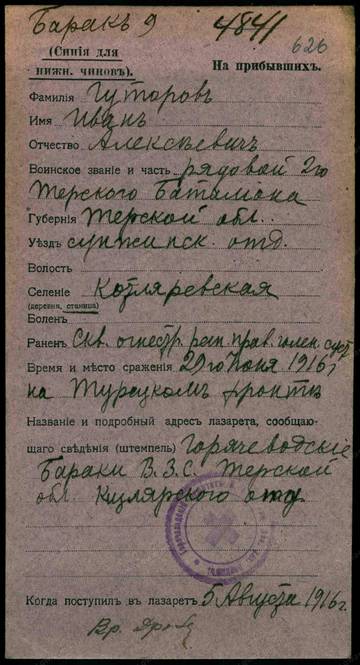 Баракъ 9 4841
626
(Синія для
нижн. чиновъ). На прибывшихъ.
Фамилія Гуторовъ
Имя Иванъ
Отчество Алексѣевичъ
Воинское званіе и часть рядовой 2го
Терского Баталіона
Губернія Терской обл.
Уѣздъ сунженск. отд.
Волость
Селеніе Котляревская
(деревня, станица)
Боленъ
Раненъ Скв. огнестр. ран. прав. голен. суст.
Время и мѣсто сраженія 29го Іюня 1916 г
на Турецкомъ фронтѣ
Названіе и подробный адресъ лазарета, сообщаю-
щаго свѣдѣнія (штемпель) Горячеводскіе
Бараки В.З.С. Терской
обл. Кизлярского отд
Когда поступилъ въ лазаретъ 5 Августа 1916 г.
Вр.